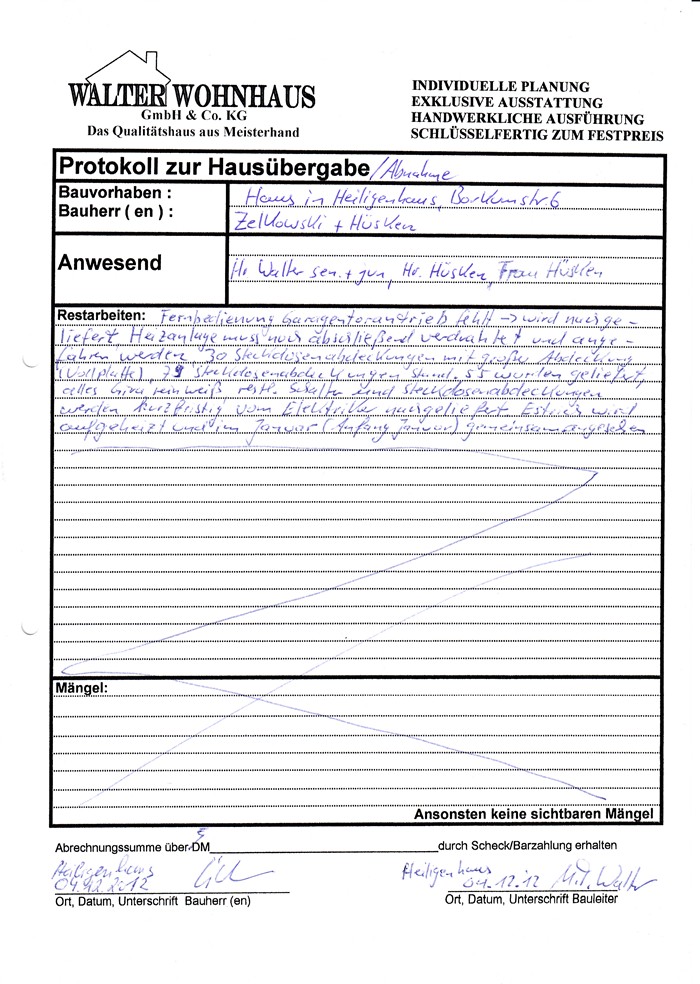 WALTER WOHNHAUS
GmbH & Co. KG
Das Qualitätshaus aus Meisterhand
INDIVIDUELLE PLANUNG
EXKLUSIVE AUSSTATTUNG
HANDWERKLICHE AUSFÜHRUNG
SCHLÜSSELFERTIG ZUM FESTPREIS
Protokoll zur Hausübergabe /Abnahme
Bauvorhaben : Haus in Heiligenhaus, Borkumstr. 6
Bauherr ( en ) : Zelkowski + Hüsken
Anwesend Hr. Walter sen. + jun, Hr. Hüsken, Frau Hüsken
Restarbeiten: Fernbedienung Garagentorantrieb fehlt -> wird nachge-
liefert Heizanlage muss noch abschließend verdrahtet und ange-
fahren werden 30 Steckdosenabdeckungen mit großer Abdeckung
(Vollplatte), 79 Steckdosenabdeckungen Stand. 55 wurden geliefert,
alles reinweiß restl. Schalter und Steckdosenabdeckungen
werden kurzfristig vom Elektriker nachgeliefert Estrich wird
aufgeheizt und im Januar (Anfang Januar) gemeinsam angesehen
Mängel:
Ansonsten keine sichtbaren Mängel
Abrechnungssumme über DM durch Scheck/Barzahlung erhalten
Heiligenhaus
04.12.2012
Heiligenhaus
04.12.12 Walter
Ort, Datum, Unterschrift Bauherr (en)
Ort, Datum, Unterschrift Bauleiter